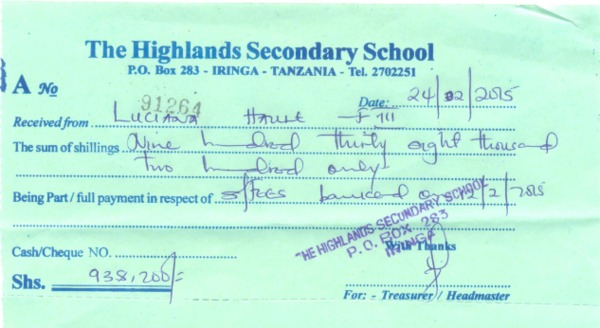 The Highlands Secondary School
P.O. Box 283 - IRINGA - TANZANIA - Tel. 2702251
A No 91264
Date: 24/02/2015
Received from LUCIANA F III
The sum of shillings Nine hundred thirty eight thousand
two hundred only
Being Part / full payment in respect of S/fees banked on 12/2/2015
THE HIGHLANDS SECONDARY SCHOOL
P.O. BOX 283
IRINGA
Cash/Cheque NO. With Thanks
Shs. 938,200/=
For: - Treasurer / Headmaster